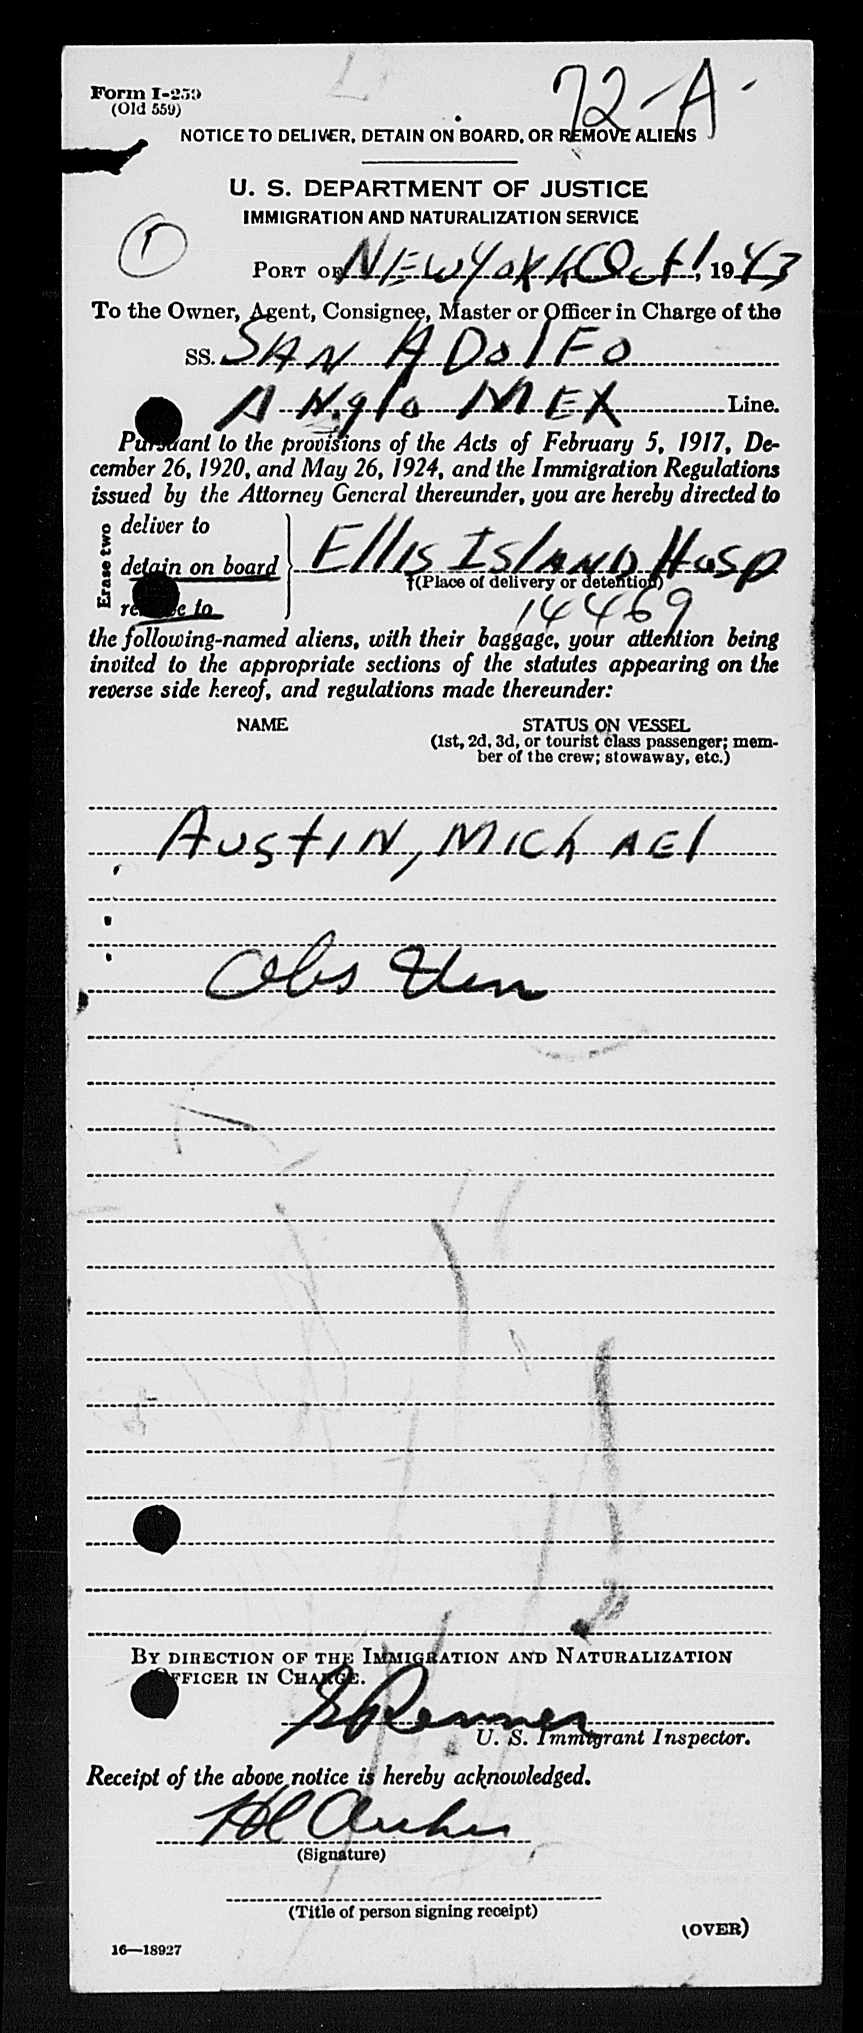 72-A
Form I-259
(Old 559)
NOTICE TO DELIVER, DETAIN ON BOARD, OR REMOVE ALIENS
U. S. DEPARTMENT OF JUSTICE
IMMIGRATION AND NATURALIZATION SERVICE
1
PORT OF NEW YORK Oct 1, 1943
To the Owner, Agent, Consignee, Master or Officer in Charge of the
SS. SAN ADOLFO
ANglo MEX Line.
Pursuant to the provisions of the Acts of February 5, 1917, De-
cember 26, 1920, and May 26, 1924, and the Immigration Regulations
issued by the Attorney General thereunder, you are hereby directed to
Erase two
deliver to
detain on board
remove to
Ellis IslAND Hosp
†(Place of delivery or detention)
14469
the following-named aliens, with their baggage, your attention being
invited to the appropriate sections of the statutes appearing on the
reverse side hereof, and regulations made thereunder:
NAME STATUS ON VESSEL
(1st, 2d, 3d, or tourist class passenger; mem-
ber of the crew; stowaway, etc.)
AustIN, MIchAEl
Obs Ven
BY DIRECTION OF THE IMMIGRATION AND NATURALIZATION
OFFICER IN CHARGE.
Renner
U. S. Immigrant Inspector.
Receipt of the above notice is hereby acknowledged.
(Signature)
(Title of person signing receipt)
(OVER)
16—18927